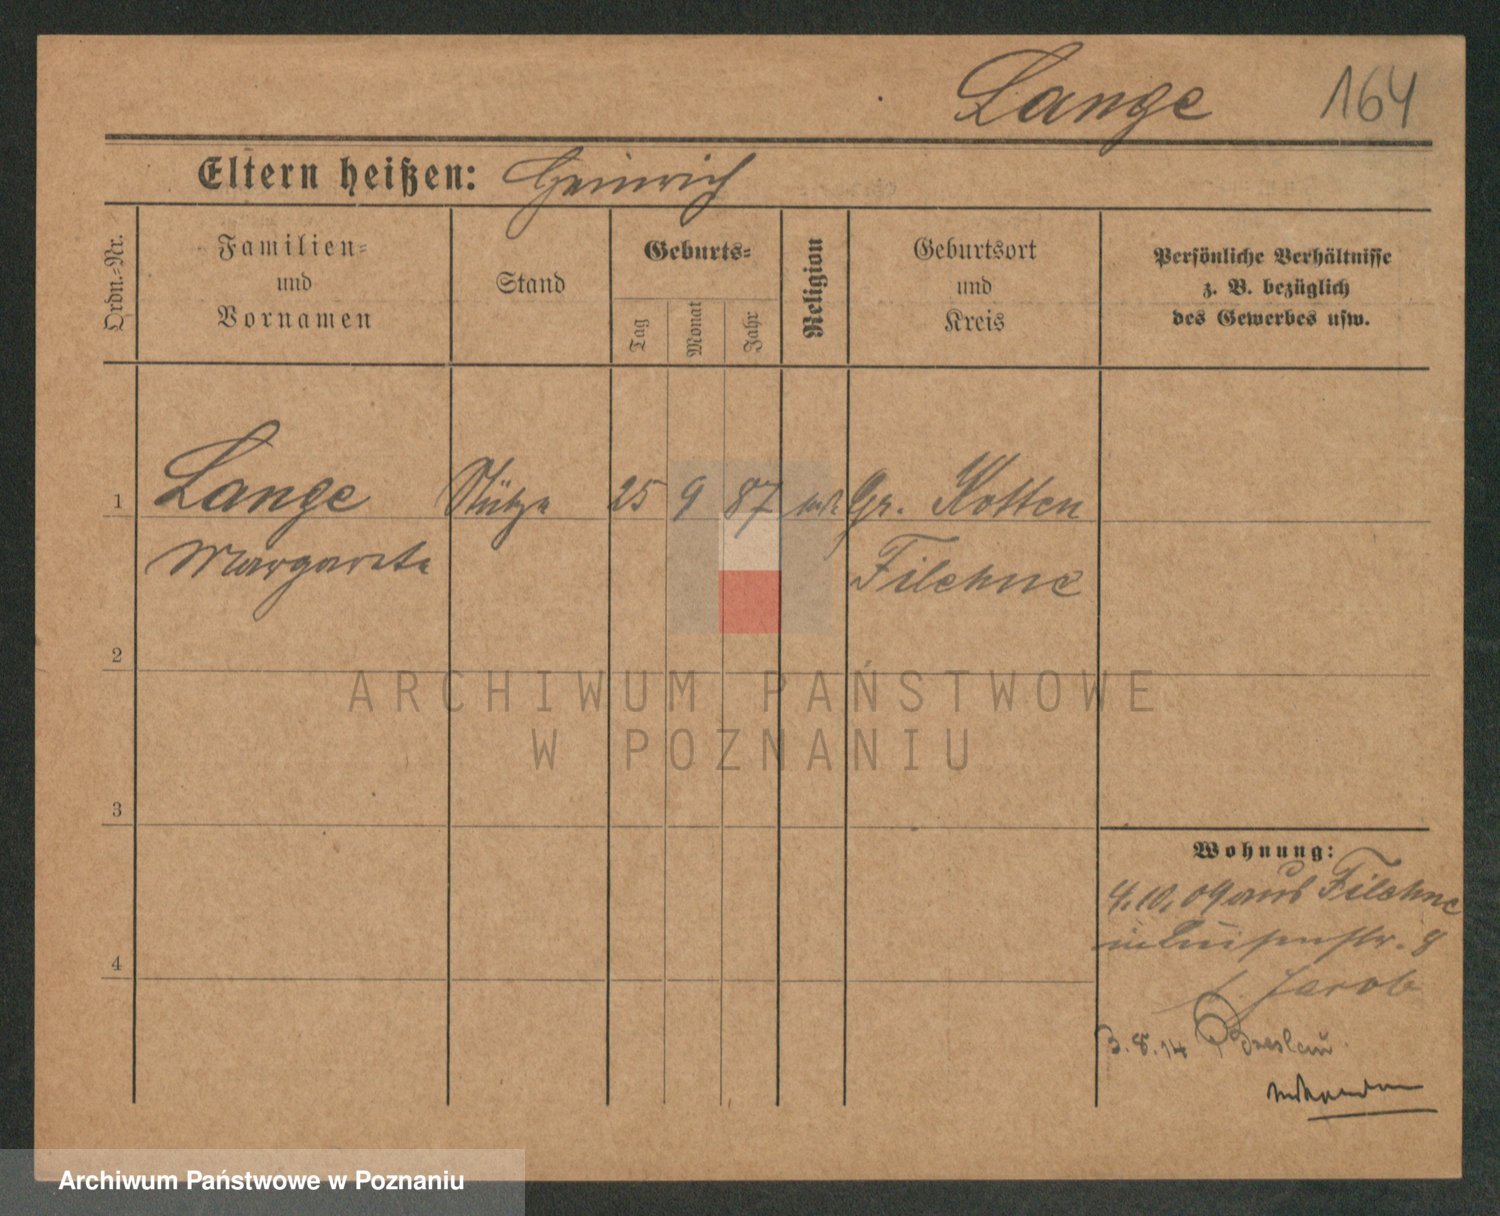 Lange 164
Eltern heißen: Heinrich
Ordn.-Nr.
Familien-
und
Vornamen
Stand
Geburts-
Tag
Monat
Jahr
Religion
Geburtsort
und
Kreis
Persönliche Verhältnisse
z. B. bezüglich
des Gewerbes usw.
1 Lange Stütze 25 9 87 Gr. Kotten
Margarete Filehne
2
3
4
ARCHIWUM PAŃSTWOWE
W POZNANIU
Wohnung:
4.10.09 aus Filehne
in Luisenstr. 8
b. Jacob
3.8.14 Breslau
Archiwum Państwowe w Poznaniu